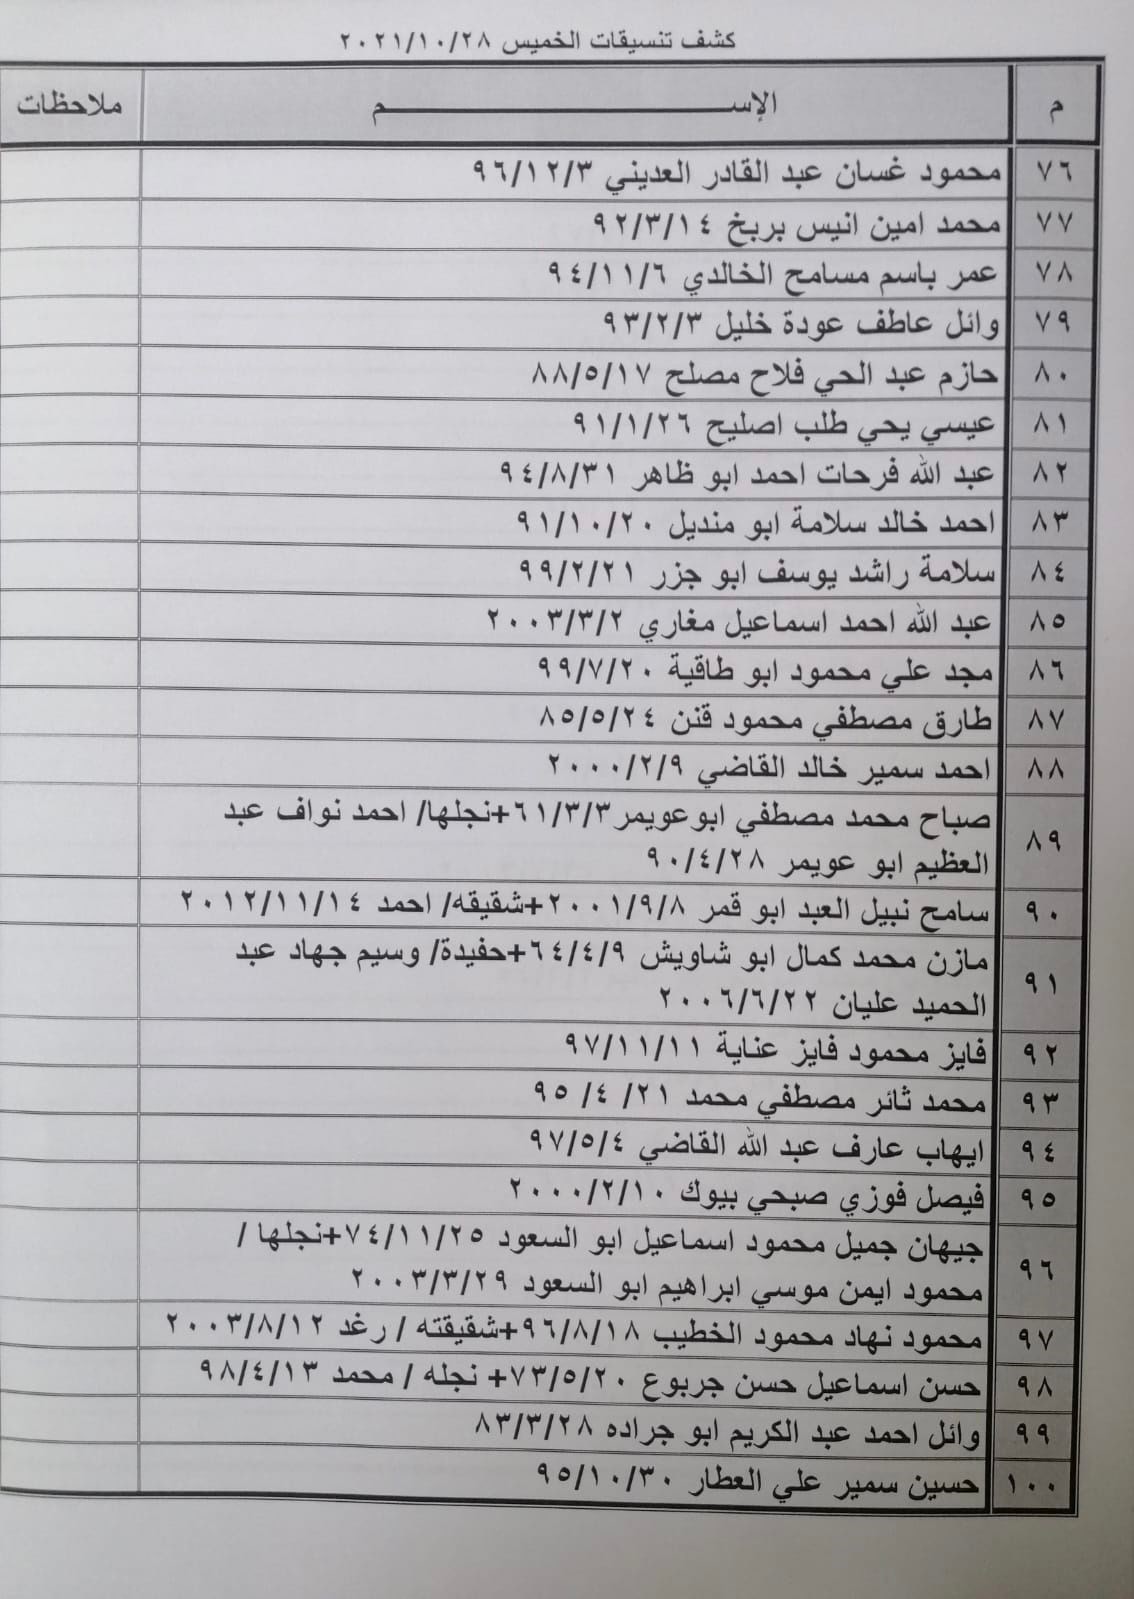 كشف تنسيقات الخميس ٢٠٢١/١٠/٢٨
م الإســـــم ملاحظات
٧٦ محمود غسان عبد القادر العديني ٩٦/١٢/٣
٧٧ محمد امين انيس بربخ ٩٢/٣/١٤
٧٨ عمر باسم مسامح الخالدي ٩٤/١١/٦
٧٩ وائل عاطف عودة خليل ٩٣/٢/٣
٨٠ حازم عبد الحي فلاح مصلح ٨٨/٥/١٧
٨١ عيسي يحي طلب اصليح ٩١/١/٢٦
٨٢ عبد الله فرحات احمد ابو ظاهر ٩٤/٨/٣١
٨٣ احمد خالد سلامة ابو منديل ٩١/١٠/٢٠
٨٤ سلامة راشد يوسف ابو جزر ٩٩/٢/٢١
٨٥ عبد الله احمد اسماعيل مغاري ٢٠٠٣/٣/٢
٨٦ مجد علي محمود ابو طاقية ٩٩/٧/٢٠
٨٧ طارق مصطفي محمود قنن ٨٥/٥/٢٤
٨٨ احمد سمير خالد القاضي ٢٠٠٠/٢/٩
٨٩ صباح محمد مصطفي ابوعويمر٦١/٣/٣+نجلها/ احمد نواف عبد
العظيم ابو عويمر ٩٠/٤/٢٨
٩٠ سامح نبيل العبد ابو قمر ٢٠٠١/٩/٨+شقيقه/ احمد ٢٠١٢/١١/١٤
٩١ مازن محمد كمال ابو شاويش ٦٤/٤/٩+حفيدة/ وسيم جهاد عبد
الحميد عليان ٢٠٠٦/٦/٢٢
٩٢ فايز محمود فايز عناية ٩٧/١١/١١
٩٣ محمد ثائر مصطفي محمد ٢١/ ٤/ ٩٥
٩٤ ايهاب عارف عبد الله القاضي ٩٧/٥/٤
٩٥ فيصل فوزي صبحي بيوك ٢٠٠٠/٢/١٠
٩٦ جيهان جميل محمود اسماعيل ابو السعود ٧٤/١١/٢٥+نجلها /
محمود ايمن موسي ابراهيم ابو السعود ٢٠٠٣/٣/٢٩
٩٧ محمود نهاد محمود الخطيب ٩٦/٨/١٨+شقيقته / رغد ٢٠٠٣/٨/١٢
٩٨ حسن اسماعيل حسن جربوع ٧٣/٥/٢٠+ نجله / محمد ٩٨/٤/١٣
٩٩ وائل احمد عبد الكريم ابو جراده ٨٣/٣/٢٨
١٠٠ حسين سمير علي العطار ٩٥/١٠/٣٠